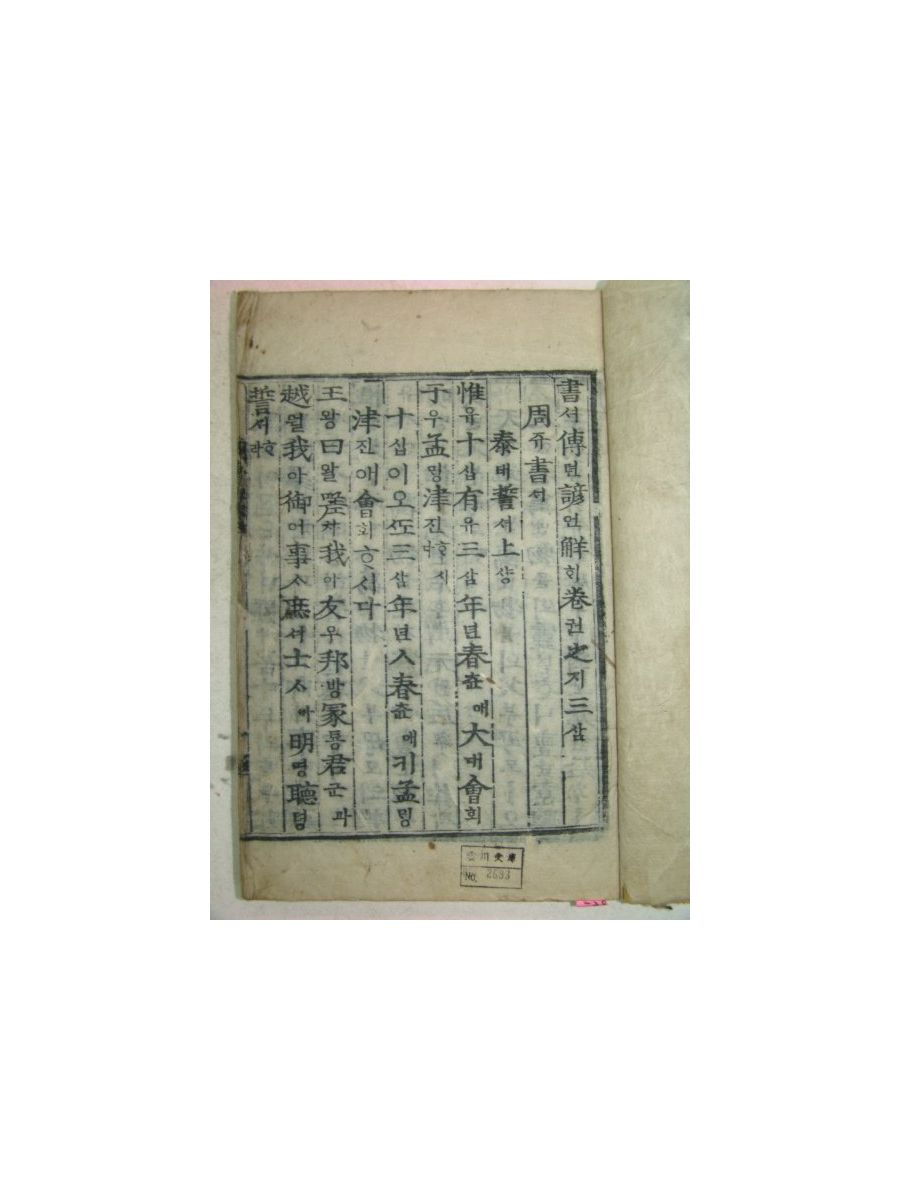 書셔傳뎐諺언解ᄒᆡ卷권之지三삼
周쥬書셔
泰태誓셔上샹
惟유十십有유三삼年년春츈애大대會회
于우孟ᄆᆡᆼ津진ᄒᆞ시다
十십이오ᄯᅩ三삼年년人春츈애키孟ᄆᆡᆼ
津진애會회ᄒᆞ시다
王왕曰왈嗟차我아友우邦방冢툥君군과
越월我아御어事ᄉᆞ庶셔士ᄉᆞ아明명聽텽
誓셔ᄒᆞ라
川文庫
No. 2693